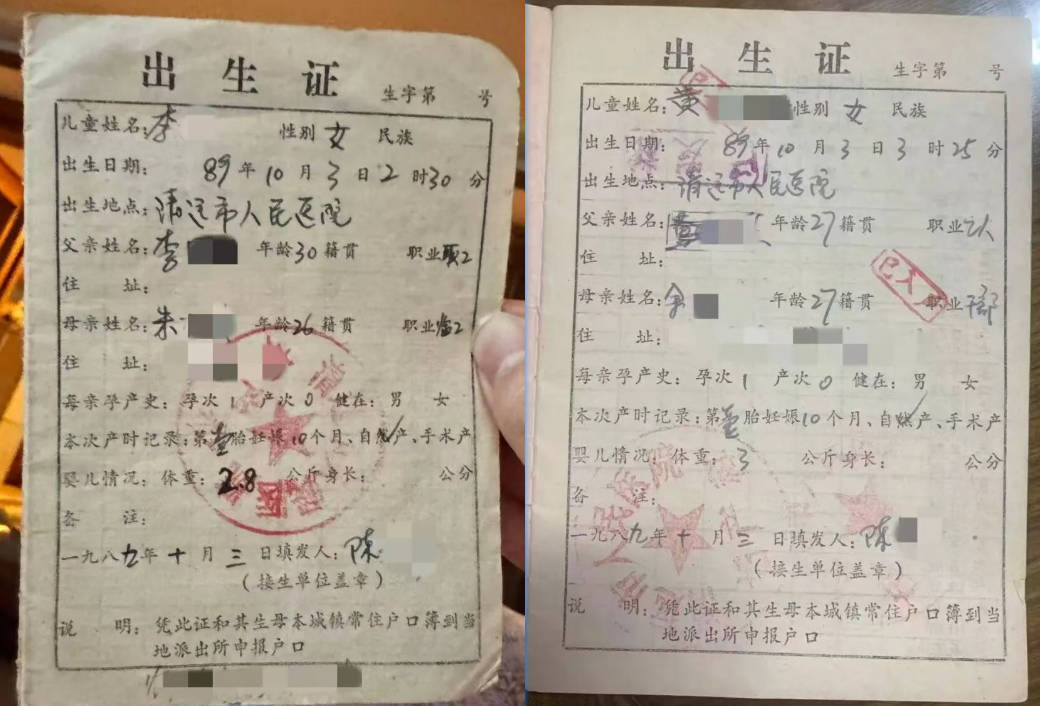 出生证
生字第 号
儿童姓名：李 性别 女 民族
出生日期： 89年10月3日2时30分
出生地点：清远市人民医院
父亲姓名：李 年龄30籍贯 职业
住 址：
母亲姓名：朱 年龄26籍贯 职业临工
住 址：
每亲孕产史：孕次1 产次0 健在：男 女
本次产时记录：第壹胎妊娠10个月、自然产、手术产
婴儿情况：体重：2.8 公斤身长： 公分
备 注：
一九八九年十月三日填发人：陈
（接生单位盖章）
说 明：凭此证和其生母本城镇常住户口簿到当
地派出所申报户口
出生证
生字第 号
儿童姓名：黄 性别 女 民族
出生日期： 89年10月3日3时25分
出生地点：清远市人民医院
父亲姓名： 年龄27籍贯 职业
住 址：
母亲姓名：余 年龄27籍贯 职业干部
住 址：
每亲孕产史：孕次1 产次0 健在：男 女
本次产时记录：第壹胎妊娠10个月、自然产、手术产
婴儿情况：体重：3 公斤身长： 公分
备 注：
一九八九年十月三日填发人：陈
（接生单位盖章）
说 明：凭此证和其生母本城镇常住户口簿到当
地派出所申报户口
已入